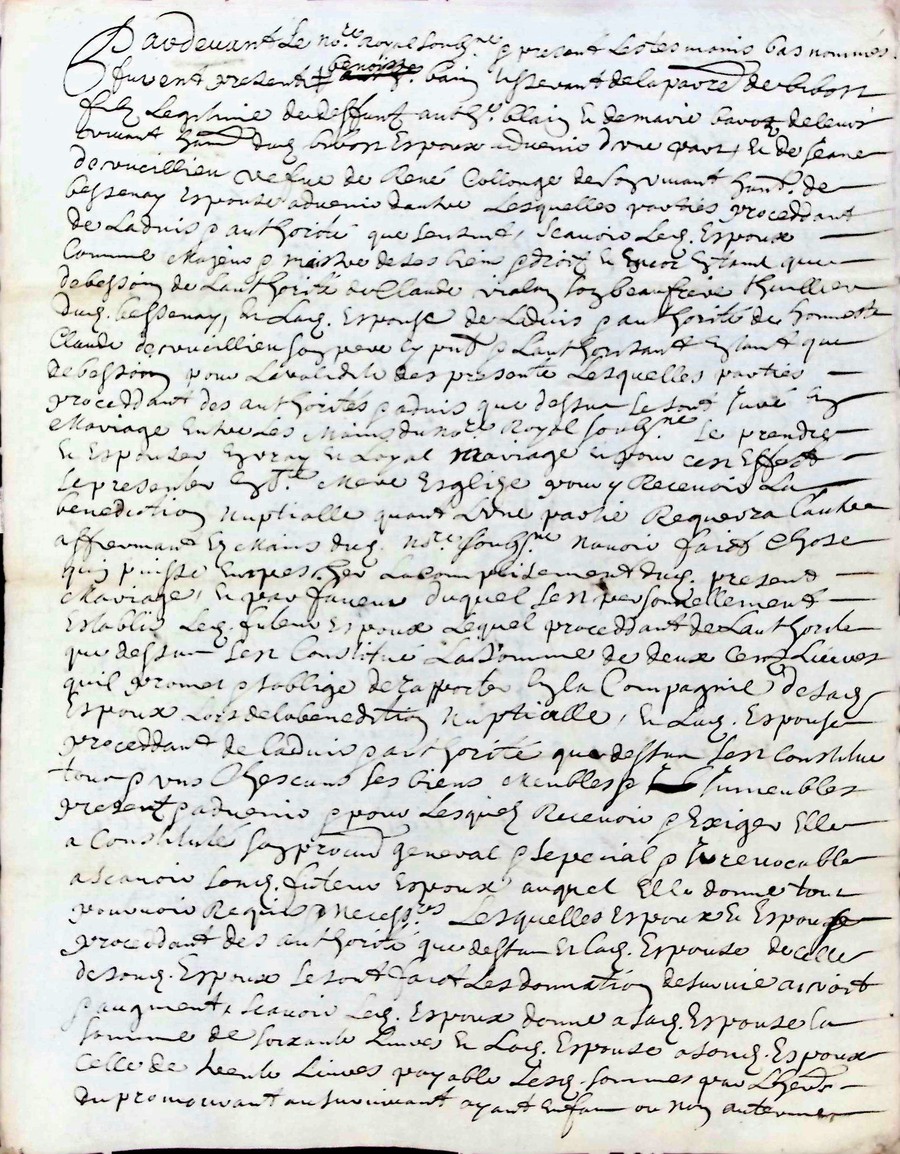 Pardevant Le no.re Royal soubz.ne & present Les tesmoins bas nommés
furent present benoiste blain tisserant de la parre de bibost
filz Legitime de deffunt anth.e blain & de marie bavoz de leur
vivant hant dud. bibost Espoux advenir d'une part, Et de Jeane
de cucillieu vefve de René Collonge de son vivant hant. de
bessenay Espouse advenir dautre Lesquelles parties proceddant
de Ladvis & authorité que sensuit, scavoir Led. Espoux
Comme Majeur & maistre de ses biens & droitz Et Encor Estant que
de besoin de Lauthorité de Claude vialon son beaufrere thuillier
dud. bessenay, Et Lad. Espouse de Ladvis & authorité de honneste
Claude de cucillieu son pere icy pnt & Lauthorisant Estant que
de besoin pour La validité des presente Lesquelles parties
proceddant des authorités & advis que dessus se sont Juré En
Mariage Entre Les Mains du No.re Royal soubz.ne Se prendre
Et Espouser En vray Et Loyal mariage Et pour cest Effect
se presenter En s.te Mere Esglize pour y Recevoir La
benediction Nuptialle quant L'une partie Requerra L'autre
affirmant Es Mains dud. no.re soubz.ne N'avoir faict Chose
qui puisse Empescher Lacomplissement dud. present
Mariage, Et par faveur duquel sest personnellement
Establis Led. futeur Espoux Lequel proceddant de Lauthorité
que dessus sest Constitué La somme de deux Cent Livres
quil promet & soblige de rapporter En la Compagnie de sad.
Espoux Lors de la benediction Nuptialle, Et Lad. Espouse
proceddant de Ladvis & authorité que dessus sest Constitue
tous & uns Chescuns ses biens Meubles & Immeubles
present & advenir & pour Lesquelz Recevoir & Exiger Elle
a Constitué son procur general & special & Irrevocable
a scavoir sond. futeur Espoux auquel Elle donne tout
pouvoir Requis & Necess.res Lesquelles Espoux Et Espouse
proceddant des authorité que dessus Et lad. Espouse de celle
de sond. Espoux se sont faict Les donnation de survie a mort
& augment, scavoir Led. Espoux donne a sad. Espouse la
somme de soixante Livres Et Lad. Espouse a sond. Espoux
Celle de trente Livres payable Lesd. sommes par L'herit.
du premourant au survivant ayant Enfan ou non au terme